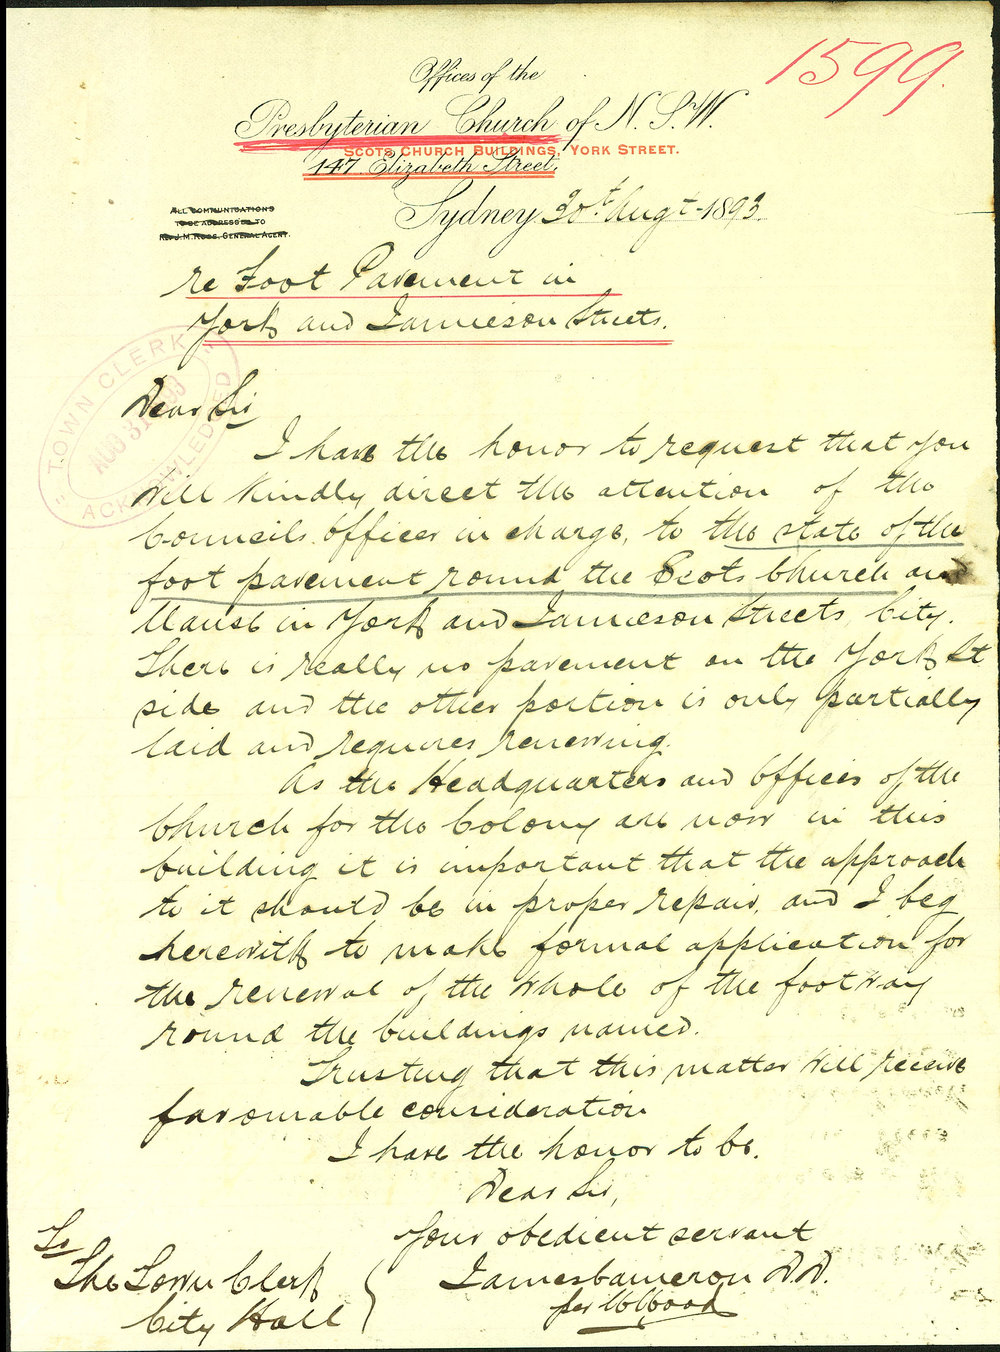 1599.
Offices of the
Presbyterian Church of N. S. W.
SCOTS CHURCH BUILDINGS, YORK STREET.
147 Elizabeth Street.
Sydney 30th Augt 1893.
ALL COMMUNICATIONS
TO BE ADDRESSED TO
REV. J. M. ROSS, GENERAL AGENT.
re Foot Pavement in
York and Jamieson Streets.
TOWN CLERK
AUG 31 93
ACKNOWLEDGED
Dear Sir
I have the honor to request that you
will kindly direct the attention of the
Councils Officer in charge, to the state of the
foot pavement round the Scots Church and
Manse in York and Jamieson Streets, City.
There is really no pavement on the York St
side and the other portion is only partially
laid and requires renewing.
As the Headquarters and Offices of the
Church for the Colony are now in this
building it is important that the approach
to it should be in proper repair, and I beg
herewith to make formal application for
the renewal of the whole of the footway
round the buildings named.
Trusting that this matter will receive
favourable consideration
I have the honor to be.
Dear Sir,
Your obedient servant
James Cameron D.D.
per Wood
To
The Town Clerk
City Hall